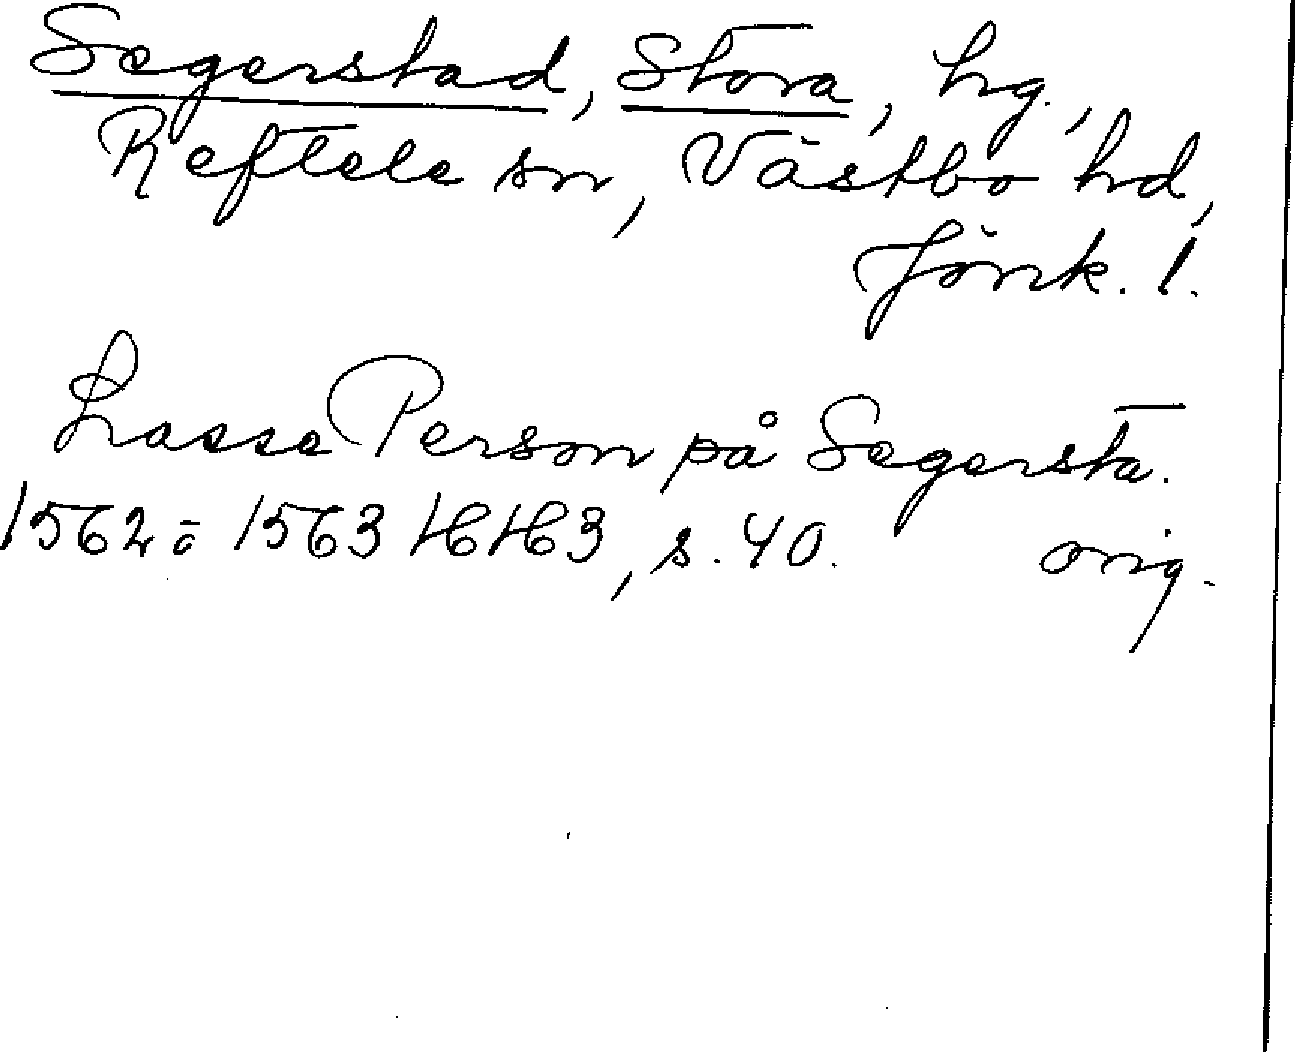 Segerstad, Stora, hg.,
Reftele sn, Västbo hd,
Jönk. l.
Lasse Person på Segersta.
1562 o 1563 HH3, s. 40. orig.